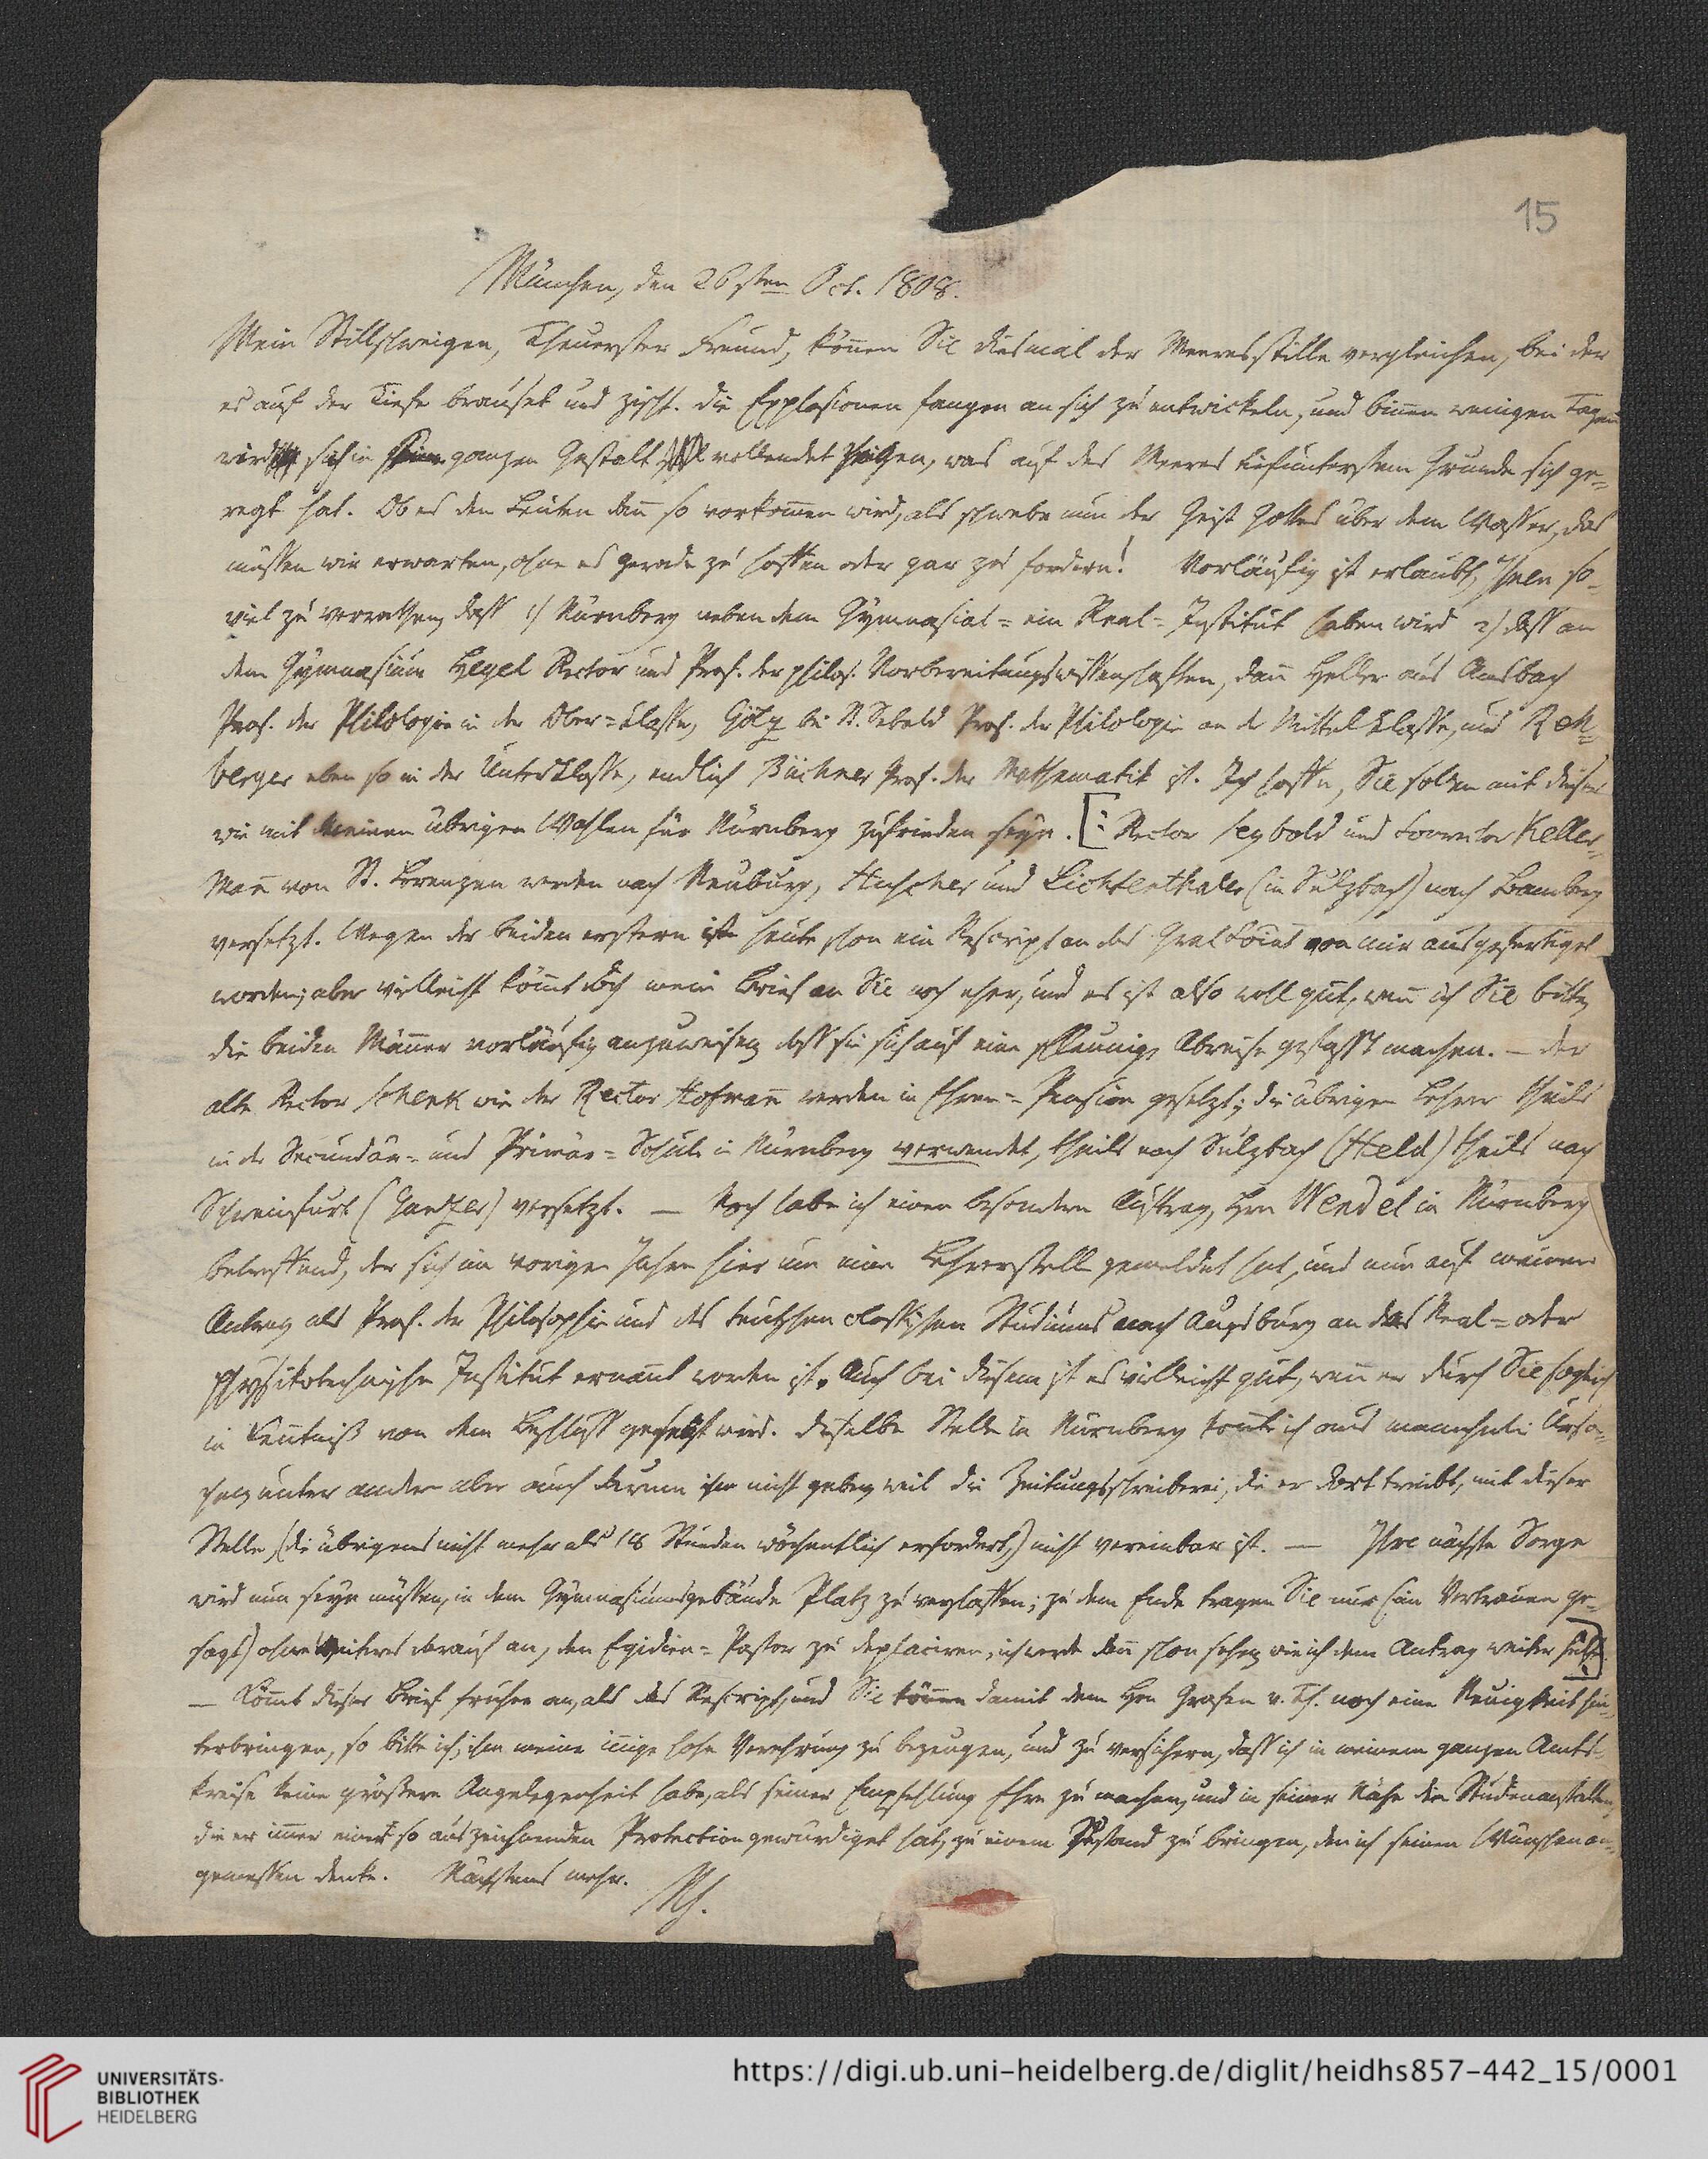 15
München, den 26sten Oct. 1808.
Mein Stillschweigen, Theuerster Freund, können Sie diesmal der Meeresstille vergleichen, bei der
es auf der Tiefe brauset und zischt. Die Explosionen fangen an sich zu entwickeln, und binnen wenigen Tagen
wird sich in seiner ganzen Gestalt vollendet zeigen, was auf des Meeres tiefunterstem Grunde sich ge=
regt hat. Ob es den Leuten dann so vorkommen wird, als schwebe nun der Geist Gottes über dem Wasser, das
müssen wir erwarten, ohne es gerade zu hoffen oder gar zu fordern! Vorläufig ist erlaubt, Ihnen so=
viel zu verrathen, dass 1) Nürnberg neben dem Gymnasial= ein Real=Institut haben wird 2) dass an
dem Gymnasium Hegel Rector und Prof. der philos. Vorbereitungswissenschaften, dann Heller aus Ansbach
Prof. der Philologie in der Ober=Classe, Götz bei St. Sebald Prof. der Philologie an der Mittelclasse, und Reh=
berger eben so in der Unterclasse, endlich Büchner Prof. der Mathematik ist. Ich hoffe, Sie sollen mit diesen
wie mit meinen übrigen Wahlen für Nürnberg zufrieden seyn. [: Rector Seybold und Conrector Keller=
mann von St. Lorenzen werden nach Neuburg, Hascher und Lichtenthaler (in Sulzbach) nach Bamberg
versetzt. Wegen der beiden erstern ist heute schon ein Rescript an das GralCoiat von mir ausgefertiget
worden; aber vielleicht kömmt doch mein Brief an Sie noch eher, und es ist also wohl gut, wenn ich Sie bitte,
die beiden Männer vorläufig anzuweisen, dass sie sich auf eine schleunige Abreise gefasst machen. — Der
alte Rector Schenk wie der Rector Hofmann werden in Ehren=Pension gesetzt; die übrigen Lehrer theils
in der Secundär= und Primär=Schule in Nürnberg verwendet, theils nach Sulzbach (Held) theils nach
Schweinfurt (Zandler) versetzt. — Noch habe ich einen besondern Auftrag, Hrn Wendel in Nürnberg
betreffend, der sich im vorigen Jahre hier um eine Lehrerstelle gemeldet hat, und nun auf meinen
Antrag als Prof. der Philosophie und des teutschen classischen Studiums nach Augsburg an das Real= oder
physikotechnische Institut ernannt worden ist. Auch bei diesem ist es vielleicht gut, wenn er durch Sie sogleich
in Kenntniß von dem Beschluss gesetzt wird. Dieselbe Stelle in Nürnberg konnte ich aus mancherlei Ursa=
chen, unter andern aber auch darum ihm nicht geben, weil die Zeitungsschreiberei, die er dort treibt, mit dieser
Stelle (die übrigens nicht mehr als 18 Stunden wöchentlich erfordert,) nicht vereinbar ist. — Ihre nächste Sorge
wird nun seyn müssen, in dem Gymnasiumsgebäude Platz zu verschaffen; zu dem Ende tragen Sie nur (im Vertrauen ge=
sagt) ohne weiteres darauf an, den Egidien=Pastor zu deplaciren; ich werde dann schon sehen, wie ich dem Antrag weiter helfe. :]
— Kömmt dieser Brief früher an, als das Rescript, und Sie können damit dem Hrn Grafen v. Th. noch eine Neuigkeit hin=
terbringen, so bitte ich, ihm meine innige hohe Verehrung zu bezeugen, und zu versichern, dass ich in meinem ganzen Amts=
kreise keine größere Angelegenheit habe, als seiner Empfehlung Ehre zu machen, und in seiner Nähe die Studienanstalten,
die er immer einer so auszeichnenden Protection gewürdiget hat, zu einem Zustand zu bringen, den ich seinen Wünschen an=
gemessen denke. Nächstens mehr.
Nh.
UNIVERSITÄTS-
BIBLIOTHEK
HEIDELBERG
https://digi.ub.uni-heidelberg.de/diglit/heidhs857-442_15/0001